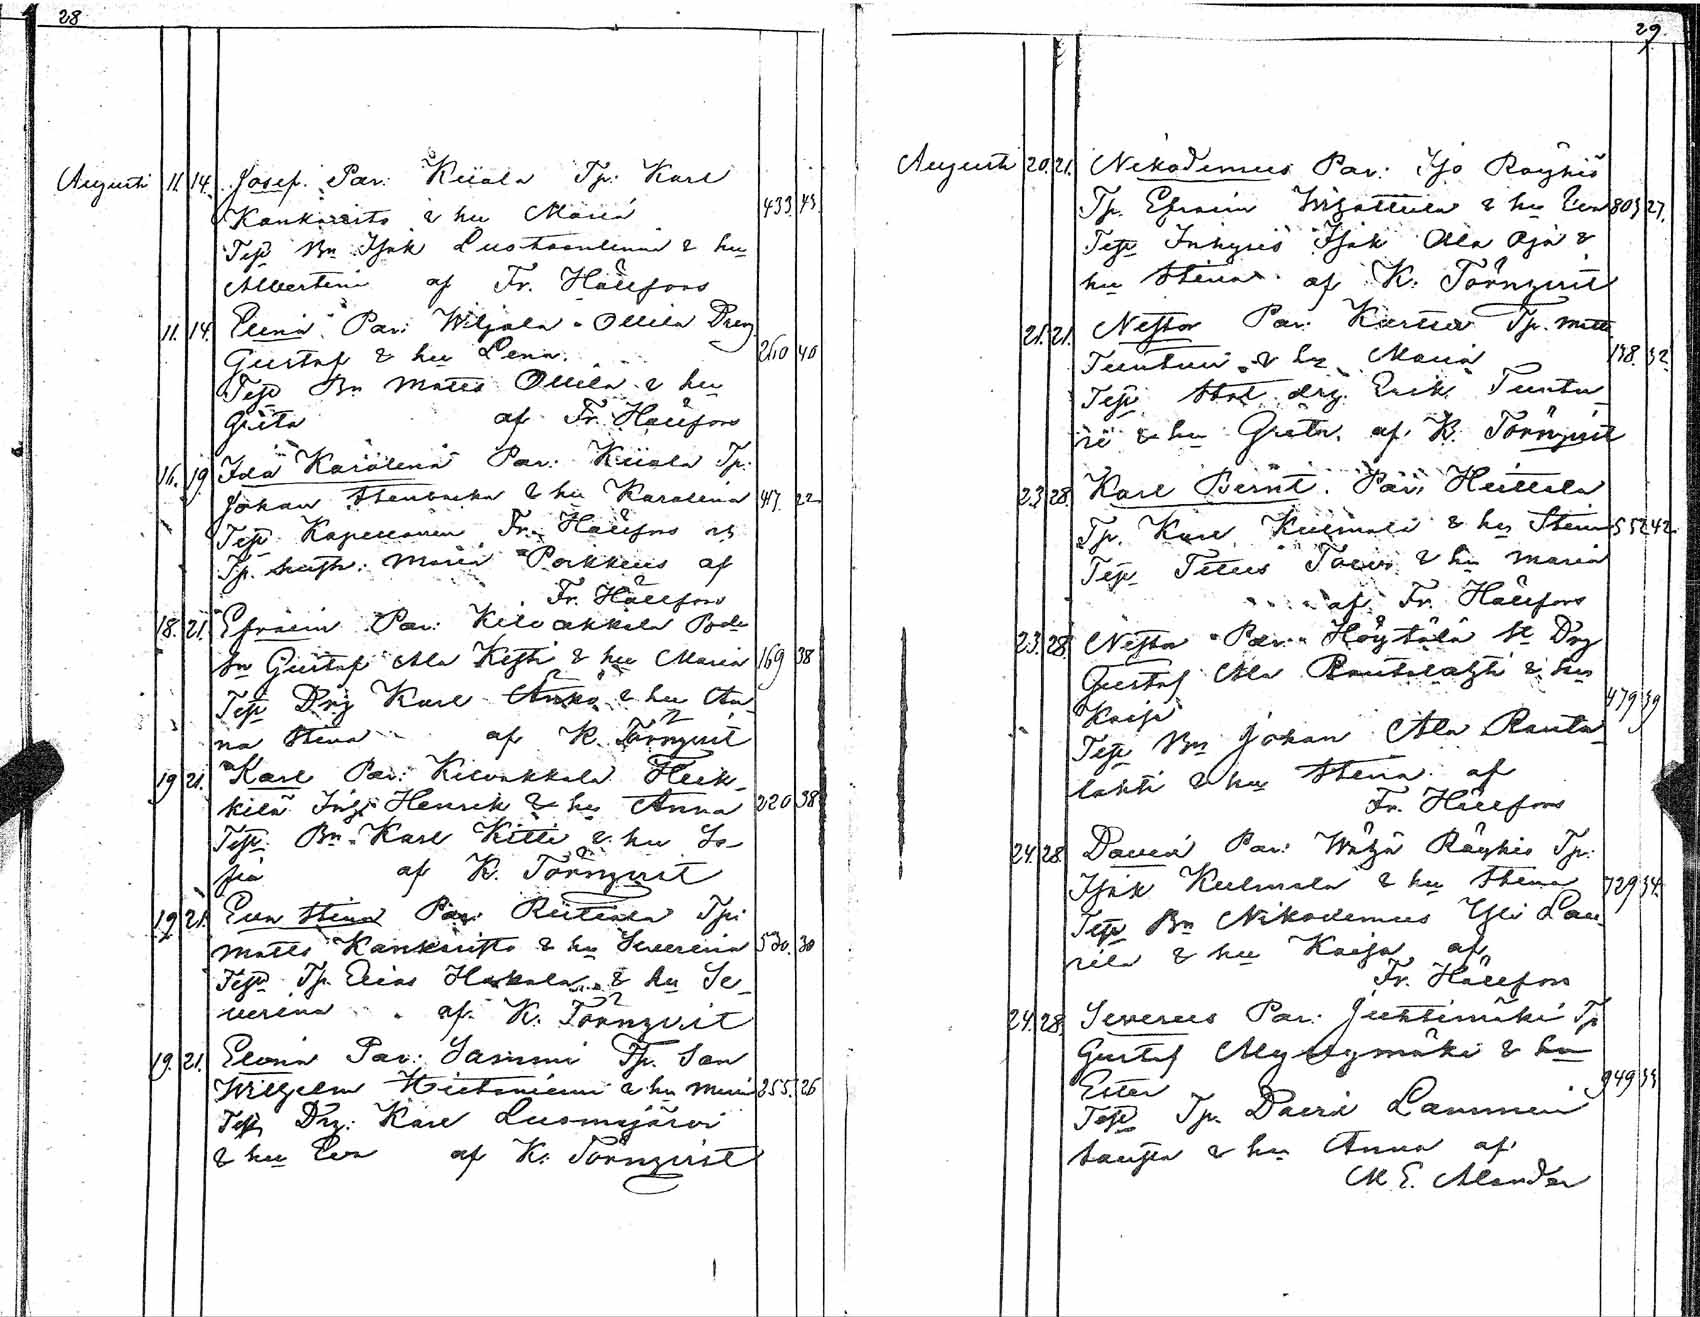 28
Augusti 11. 14. Josef. Par: Kiiala Tp: Karl
Kankaristo & hu Maria 433. 43.
Test Bn Isak Luoteenlinna & hu
Albertina af Fr. Hällfors
11. 14. Elena Par: Wiljala Ollila Dreng
Gustaf & hu Lena. 260 40
Test Bn Matts Ollila & hu
Greta af Fr. Hällfors
16. 19 Ida Karolina Par: Kiiala Tp:
Johan Stenbacka & hu Karolina 417. 22
Test Kapellanen Fr. Hällfors och
Tp. hustr: Maria Porkkus af
Fr. Hällfors
18. 21. Efraim Par: Kilvakkala Bonde
sn Gustaf Ala Kesti & hu Maria 169 38
Test Drg Karl & hu An
na Stina af K. Törnqvist
19 21. Karl Par: Kilvakkala Heik
kilä Inhg Henrik & hu Anna 220 38
Test. Bn Karl Kitti & hu So
fia af K. Törnqvist
19 21. Eva Stina Par: Riitiala Tp:
Matts Kankaristo & hu Severina 530. 30
Test Tp. Elias Hakala & hu Se
verina af K. Törnqvist
19. 21. Elvina Par: Sammi Tp. Son
Wilhelm Hietaniemi & hu Maria 255. 26
Test Drg: Karl Luomajärvi
& hu Eva af K: Törnqvist
29.
Augusti 20. 21. Nikodemus Par: Iso Röyhiö
Tp. Efraim & hu Eva 803 27.
Test Inhyses Isak Ala Oja &
hu Stina af K. Törnqvist
21. 21. Nestor Par: Kartu Tp. Matts
Tuuturi & hu Maria 198. 32
Test Stat drg. Erik Tuutu
ri & hu Greta. af K. Törnqvist
23. 28. Karl Bernt. Par: Heittola
Tp. Karl Kulmala & hu Stina 552 42
Test Titus & hu Maria
af Fr. Hällfors
23. 28. Nestor Par: Höytölä St Drg
Gustaf Ala Rautalahti & hu
Kaisa 479 39
Test Bn Johan Ala Rauta
lahti & hu Stina af
Fr. Hällfors
24. 28. David Par: Wähä Röyhiö Tp:
Isak Kulmala & hu Stina 729 34.
Test Bn Nikodemus Yli Lau
rila & hu Kaisa af
Fr. Hällfors
24. 28. Severus Par: Juhtimäki Tp
Gustaf Myllymäki & hu
Ester 949 34
Test Tp. David Lammin
hausta & hu Anna af
M E. Alander